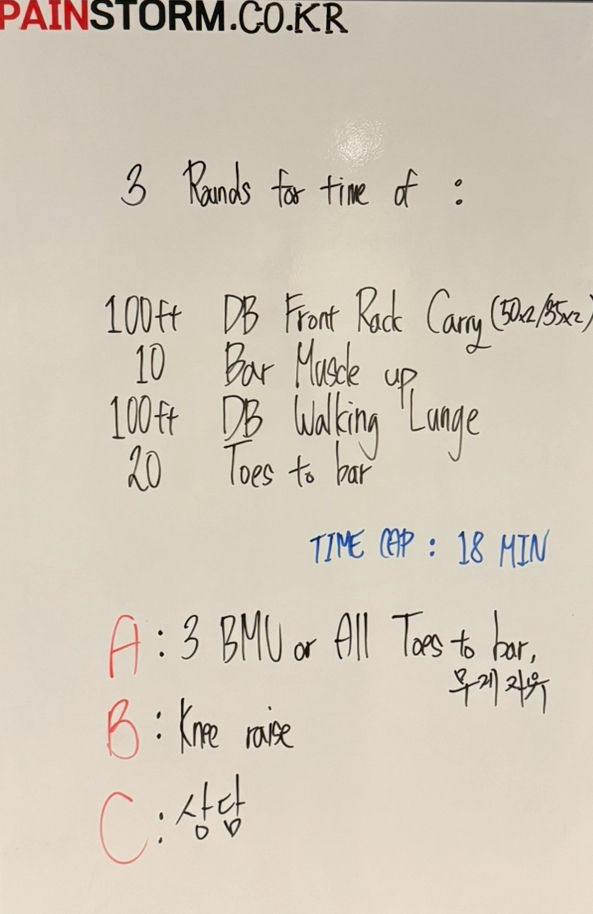 PAINSTORM.CO.KR
3 Rounds for time of :
100ft DB Front Rack Carry (50x2/35x2)
10 Bar Muscle up
100ft DB Walking Lunge
20 Toes to bar
TIME CAP : 18 MIN
A : 3 BMU or All Toes to bar,
무게 자유
B : Knee raise
C : 상담